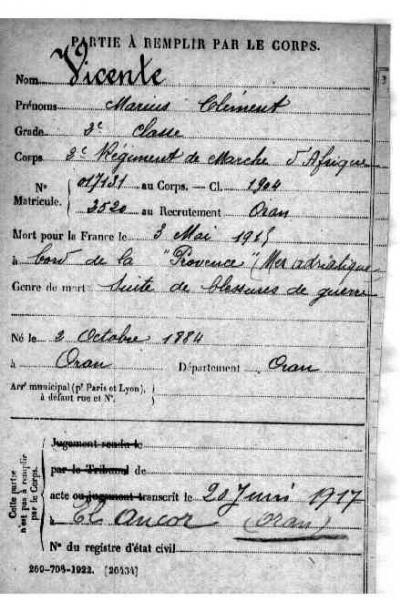 PARTIE À REMPLIR PAR LE CORPS.
Nom Vicente
Prénoms Marius Clément
Grade 2e Classe
Corps 2e Régiment de Marche d'Afrique
N° Matricule. { 017131 au Corps. — Cl. 1904
3520 au Recrutement Oran
Mort pour la France le 3 Mai 1915
à bord de la "Provence" (Mer adriatique
Genre de mort Suite de blessures de guerre
Né le 2 Octobre 1884
à Oran Département Oran
Arrt municipal (pr Paris et Lyon),
à défaut rue et N°.
Cette partie n'est pas à remplir par le Corps.
Jugement rendu le
par le Tribunal de
acte ou jugement transcrit le 20 Juin 1917
à El Ancor (Oran)
N° du registre d'état civil
260-708-1922. [26434]